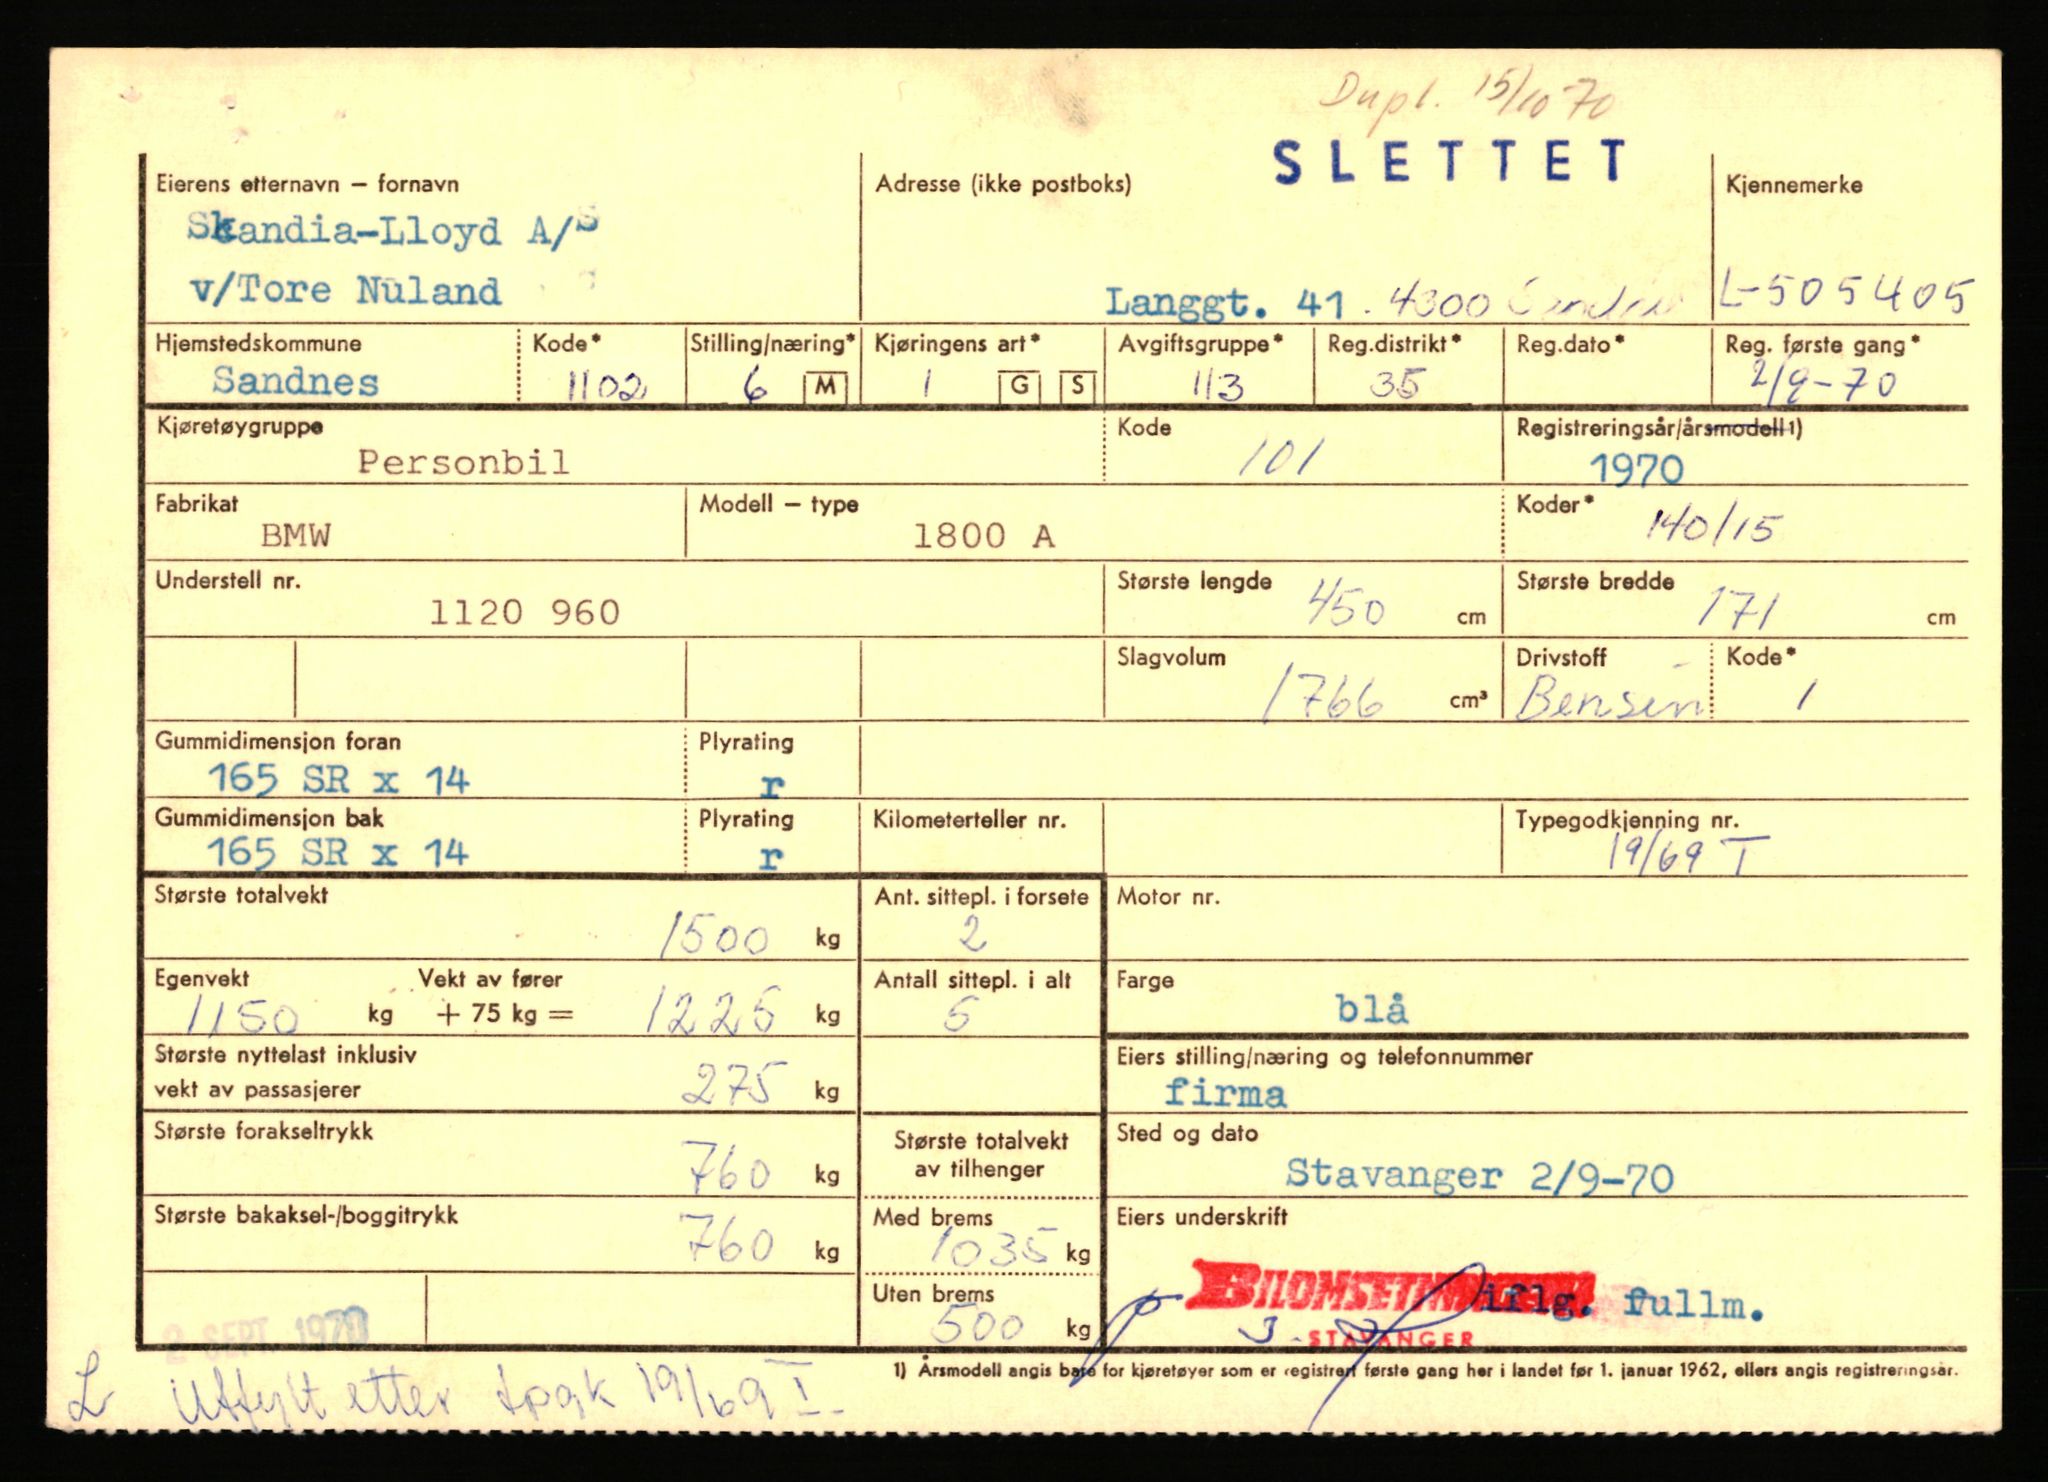 Dupl. 15/10 70
SLETTET
Eierens etternavn – fornavn
Skandia-Lloyd A/S
v/Tore Nuland
Adresse (ikke postboks)
Langgt. 41. 4300
Kjennemerke
L-505405
Hjemstedskommune
Sandnes
Kode*
1102
Stilling/næring*
6 M
Kjøringens art*
1 G S
Avgiftsgruppe*
113
Reg.distrikt*
35
Reg.dato*
Reg. første gang*
2/9-70
Kjøretøygruppe
Personbil
Kode
101
Registreringsår/årsmodell 1)
1970
Fabrikat
BMW
Modell – type
1800 A
Koder*
140/15
Understell nr.
1120 960
Største lengde
450 cm
Største bredde
171 cm
Slagvolum
1766 cm³
Drivstoff
Bensin
Kode*
1
Gummidimensjon foran
165 SR x 14
Plyrating
r
Gummidimensjon bak
165 SR x 14
Plyrating
r
Kilometerteller nr.
Typegodkjenning nr.
19/69 T
Største totalvekt
1500 kg
Ant. sittepl. i forsete
2
Motor nr.
Egenvekt
1150 kg
Vekt av fører
+ 75 kg = 1225 kg
Antall sittepl. i alt
5
Farge
blå
Største nyttelast inklusiv
vekt av passasjerer
275 kg
Eiers stilling/næring og telefonnummer
firma
Største forakseltrykk
760 kg
Største totalvekt
av tilhenger
Sted og dato
Stavanger 2/9-70
Største bakaksel-/boggitrykk
760 kg
Med brems
1035 kg
Uten brems
500 kg
Eiers underskrift
iflg. fullm.
STAVANGER
2 SEPT. 1970
1) Årsmodell angis bare for kjøretøyer som er registrert første gang her i landet før 1. januar 1962, ellers angis registreringsår.
Utfylt etter tpgk 19/69 T